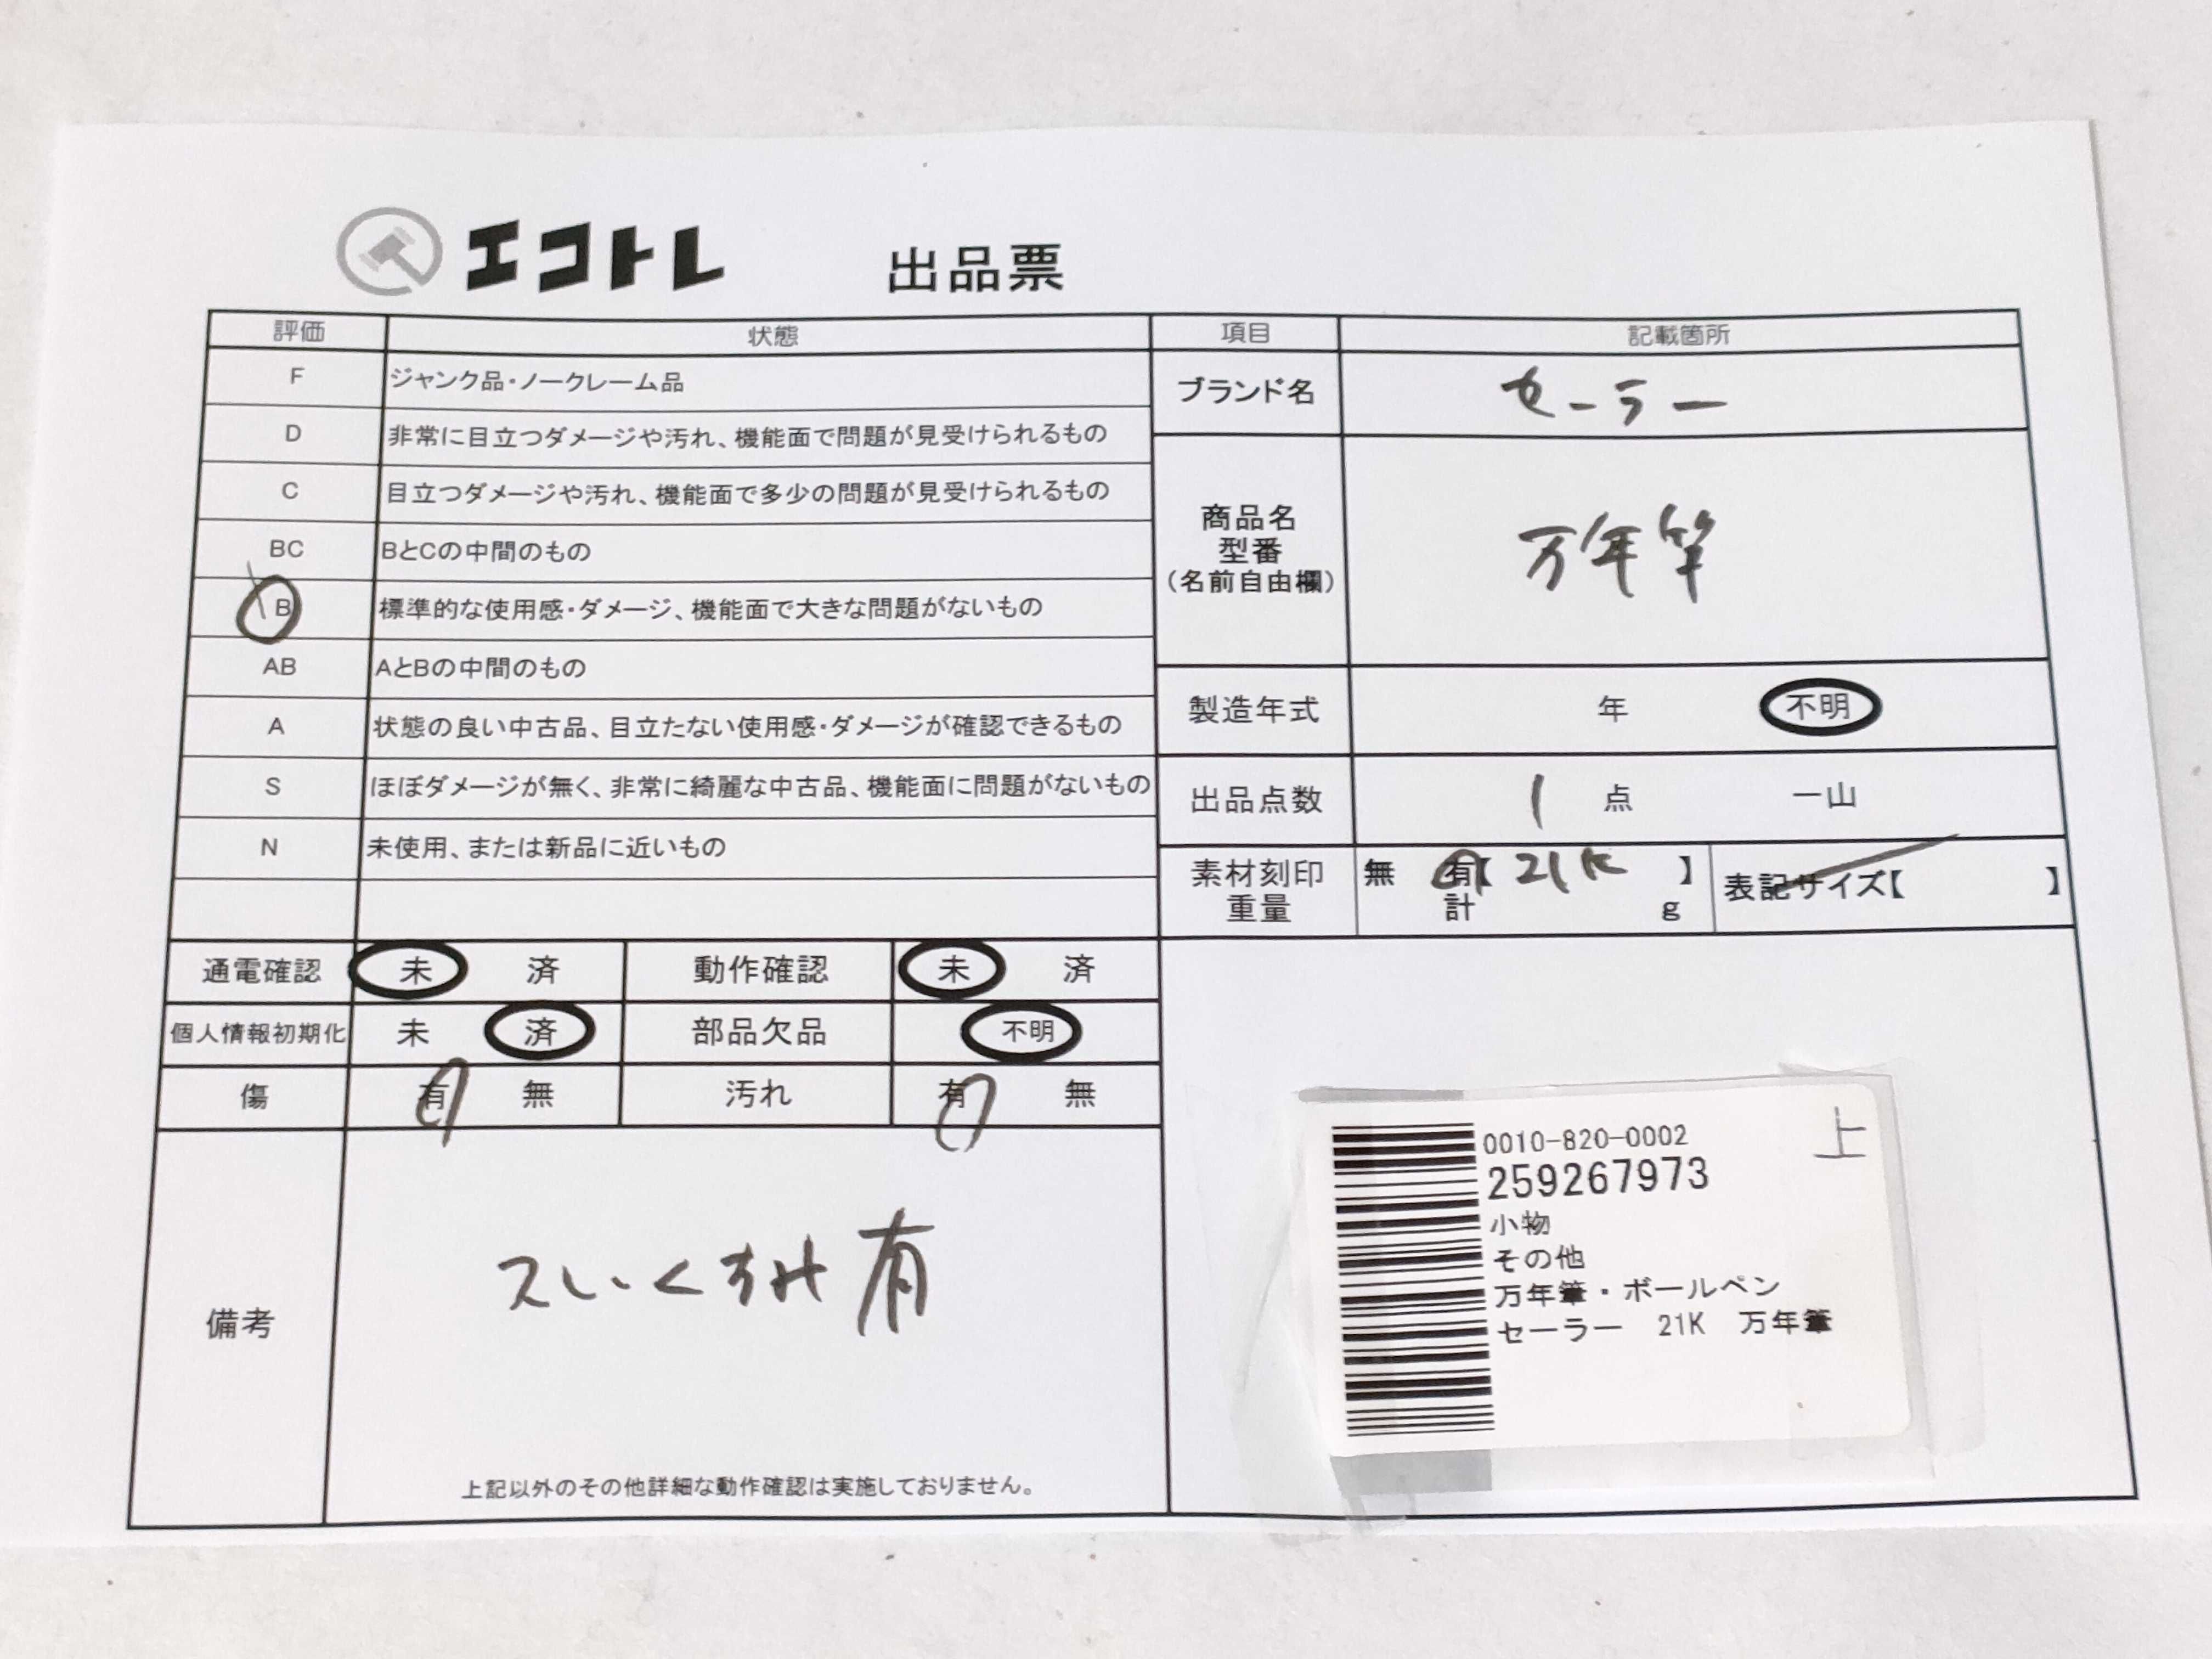 エコトレ 出品票
評価 状態 項目 記載箇所
F ジャンク品・ノークレーム品
D 非常に目立つダメージや汚れ、機能面で問題が見受けられるもの
C 目立つダメージや汚れ、機能面で多少の問題が見受けられるもの
BC BとCの中間のもの
B 標準的な使用感・ダメージ、機能面で大きな問題がないもの
AB AとBの中間のもの
A 状態の良い中古品、目立たない使用感・ダメージが確認できるもの
S ほぼダメージが無く、非常に綺麗な中古品、機能面に問題がないもの
N 未使用、または新品に近いもの
ブランド名 セーラー
商品名
型番
(名前自由欄)
万年筆
製造年式 年 不明
出品点数 1 点 一山
素材刻印
重量
無 有【 21K 】
計 g
表記サイズ【 】
通電確認 未 済 動作確認 未 済
個人情報初期化 未 済 部品欠品 不明
傷 有 無 汚れ 有 無
備考
有
上記以外のその他詳細な動作確認は実施しておりません。
上
0010-820-0002
259267973
小物
その他
万年筆・ボールペン
セーラー 21K 万年筆